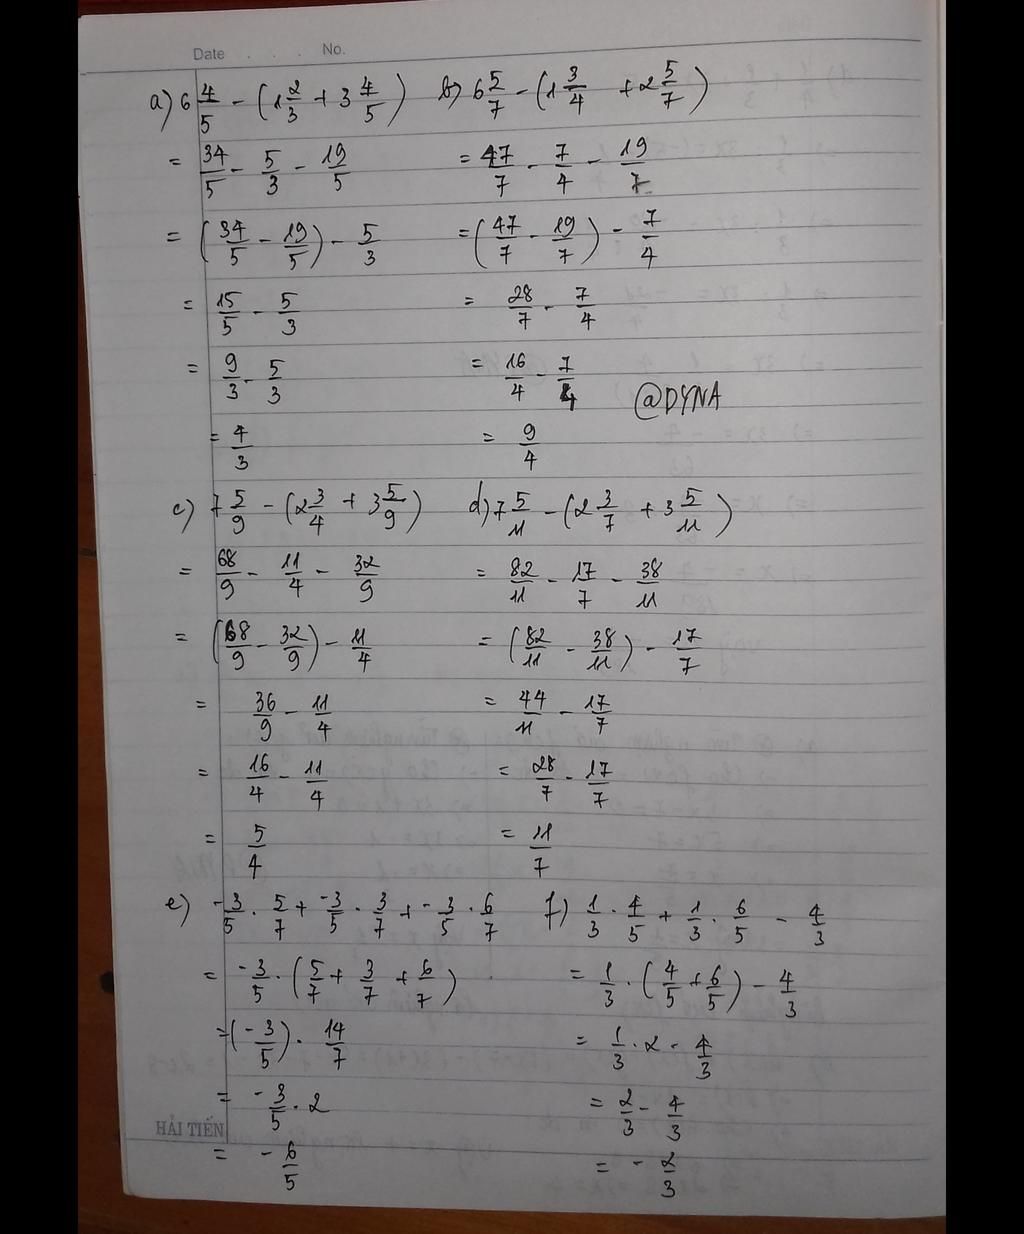 Date . . . . No.
a) 6 4/5 - (1 2/3 + 3 4/5)
= 34/5 - 5/3 - 19/5
= (34/5 - 19/5) - 5/3
= 15/5 - 5/3
= 9/3 - 5/3
= 4/3
b) 6 5/7 - (1 3/4 + 2 5/7)
= 47/7 - 7/4 - 19/7
= (47/7 - 19/7) - 7/4
= 28/7 - 7/4
= 16/4 - 7/4
@DYNA
= 9/4
c) 7 5/9 - (2 3/4 + 3 5/9)
= 68/9 - 11/4 - 32/9
= (68/9 - 32/9) - 11/4
= 36/9 - 11/4
= 16/4 - 11/4
= 5/4
d) 7 5/11 - (2 3/7 + 3 5/11)
= 82/11 - 17/7 - 38/11
= (82/11 - 38/11) - 17/7
= 44/11 - 17/7
= 28/7 - 17/7
= 11/7
e) -3/5 . 5/7 + -3/5 . 3/7 + -3/5 . 6/7
= -3/5 . (5/7 + 3/7 + 6/7)
= (-3/5) . 14/7
= -3/5 . 2
= -6/5
f) 1/3 . 4/5 + 1/3 . 6/5 - 4/3
= 1/3 . (4/5 + 6/5) - 4/3
= 1/3 . 2 - 4/3
= 2/3 - 4/3
= -2/3
HẢI TIẾN